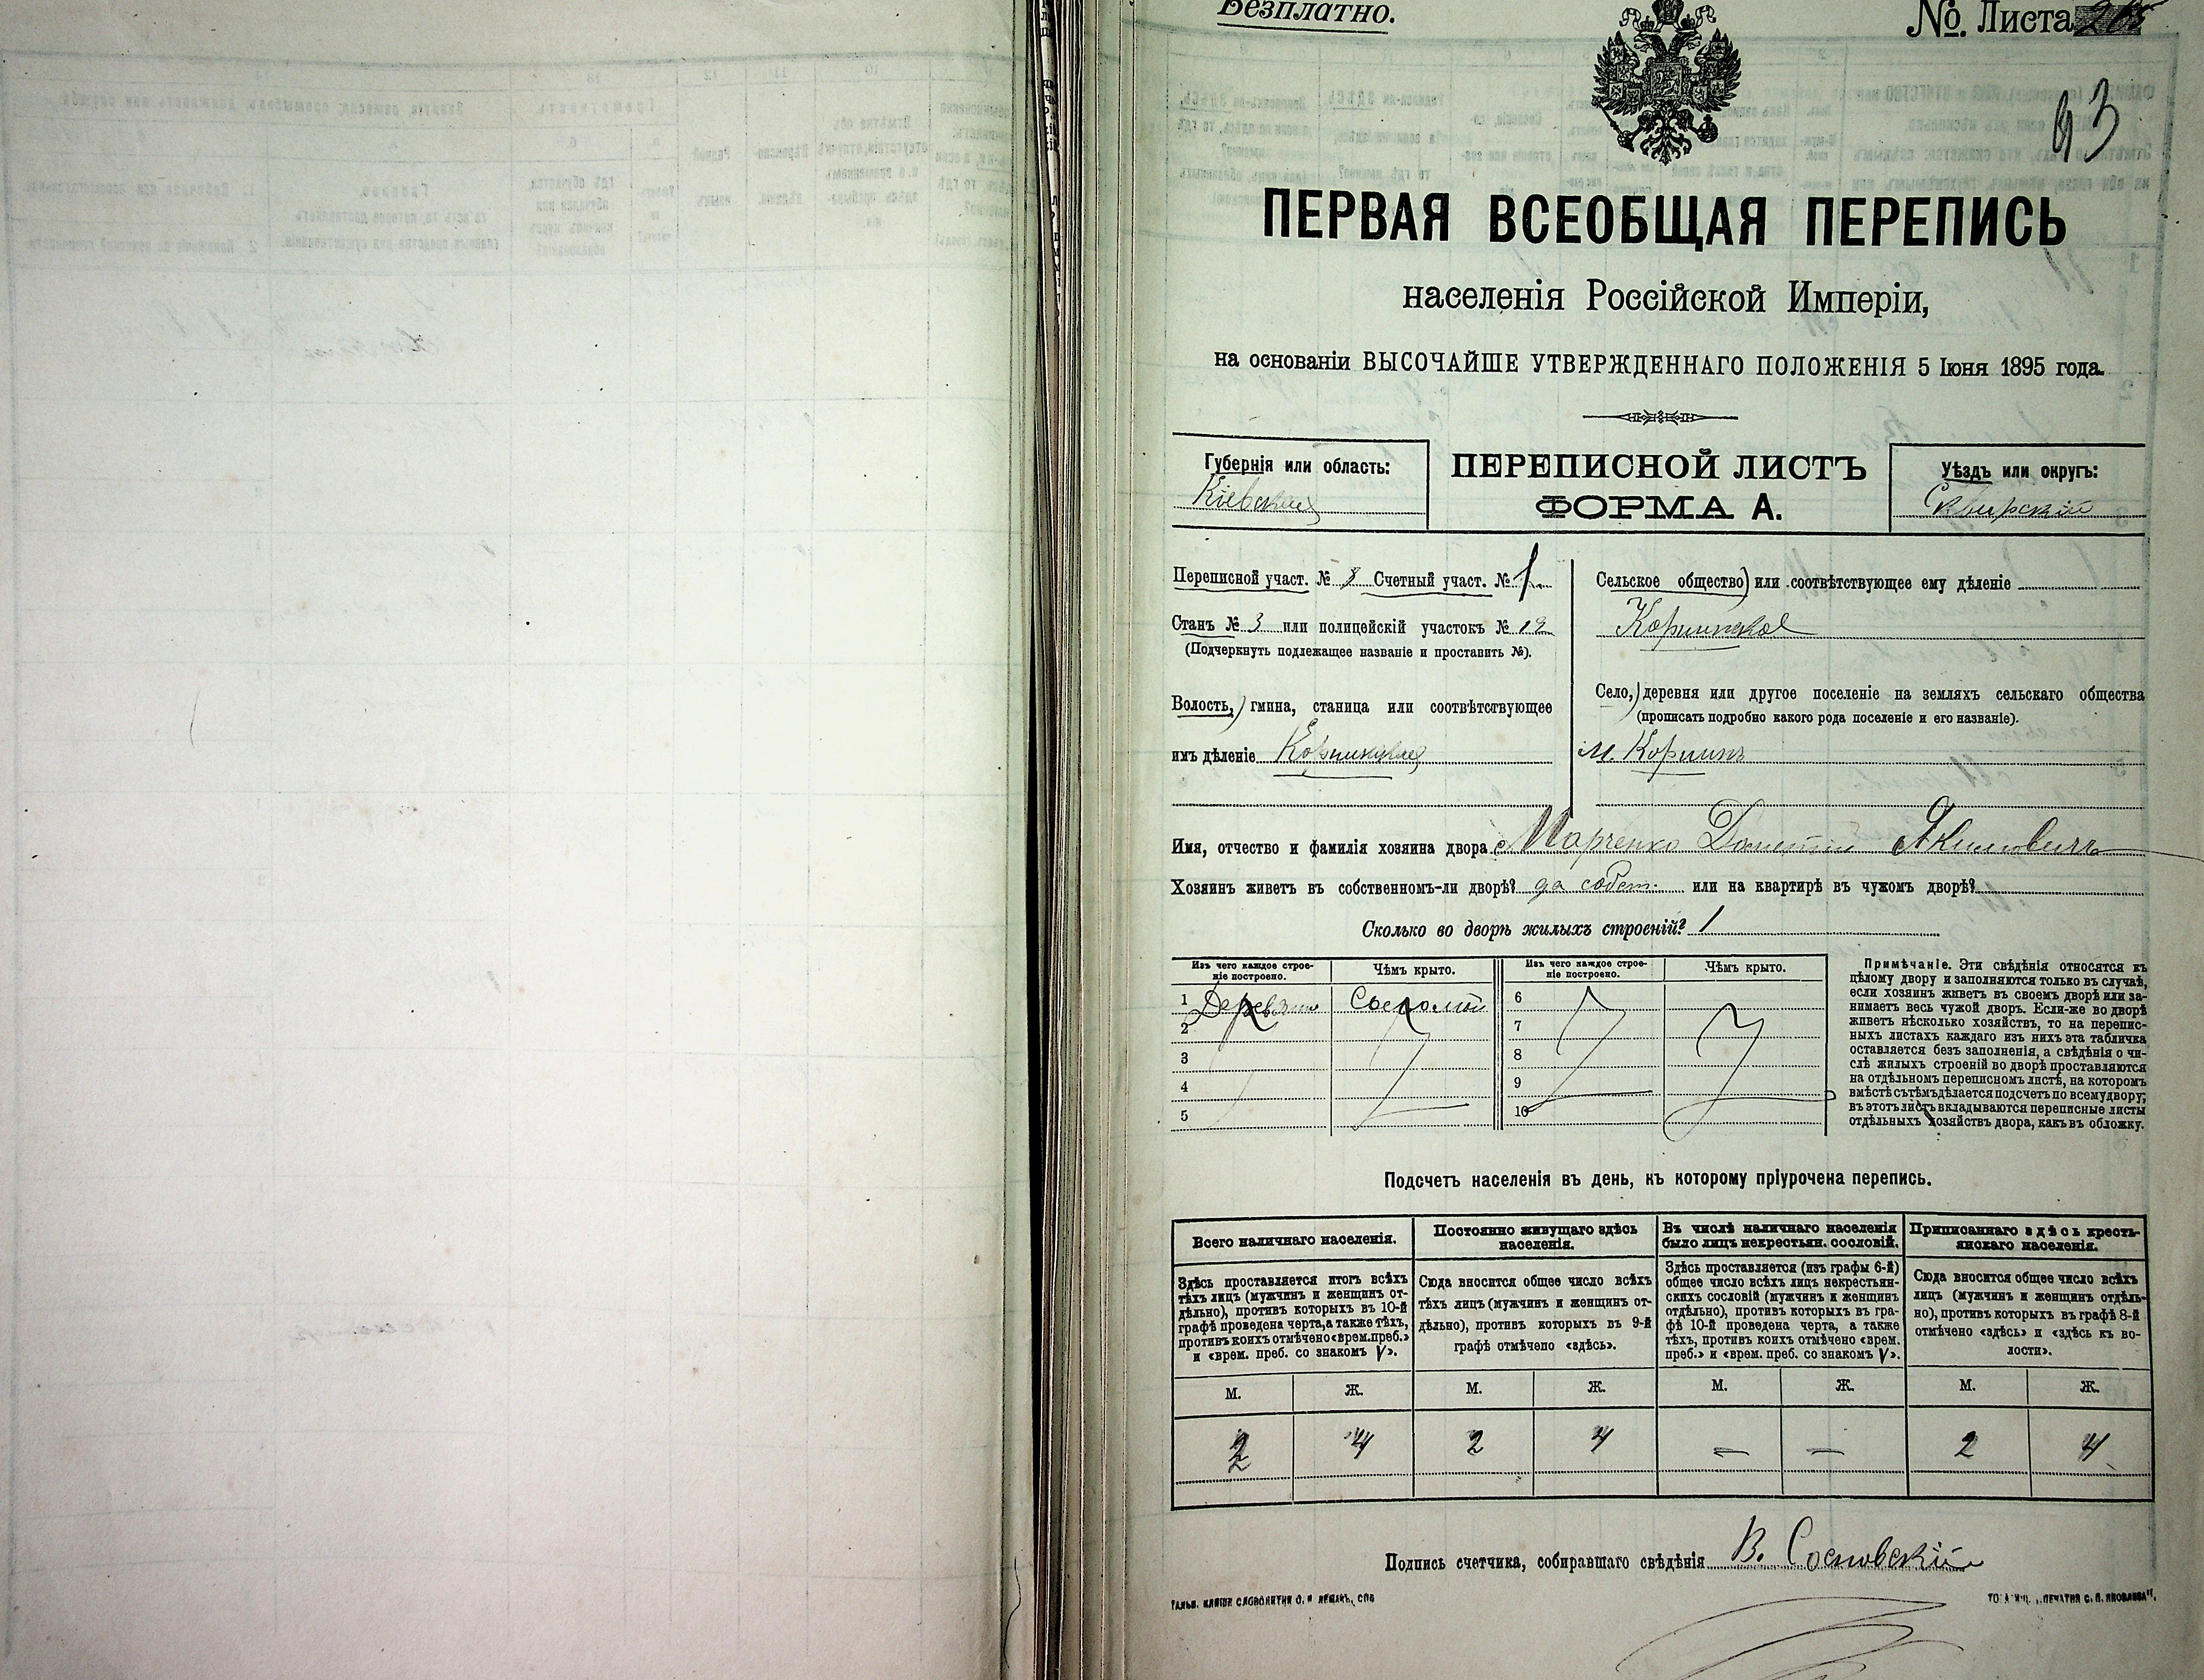 Безплатно.
№. Листа
93
ПЕРВАЯ ВСЕОБЩАЯ ПЕРЕПИСЬ
населенія Россійской Имперіи,
на основаніи ВЫСОЧАЙШЕ УТВЕРЖДЕННАГО ПОЛОЖЕНІЯ 5 Іюня 1895 года.
Губернія или область:
Кіевская
ПЕРЕПИСНОЙ ЛИСТЪ
ФОРМА А.
Уѣздъ или округъ:
Сквирскій
Переписной участ. № 8 Счетный участ. № 1
Станъ № 3 или полицейскій участокъ № 19
(Подчеркнуть подлежащее названіе и проставить №).
Волость, гмина, станица или соотвѣтствующее
имъ дѣленіе Корнинская
Сельское общество или соотвѣтствующее ему дѣленіе
Корнинское
Село, деревня или другое поселеніе на земляхъ сельскаго общества
(прописать подробно какого рода поселеніе и его названіе).
м. Корнинъ
Имя, отчество и фамилія хозяина двора Марченко Якимовичъ
Хозяинъ живетъ въ собственномъ-ли дворѣ? да собст. или на квартирѣ въ чужомъ дворѣ?
Сколько во дворѣ жилыхъ строеній? 1
Изъ чего каждое строе-
ніе построено.
Чѣмъ крыто.
Изъ чего каждое строе-
ніе построено.
Чѣмъ крыто.
1 Дерев. Соломой
2
3
4
5
6
7
8
9
10
Примѣчаніе. Эти свѣдѣнія относятся къ
цѣлому двору и заполняются только въ случаѣ,
если хозяинъ живетъ въ своемъ дворѣ или за-
нимаетъ весь чужой дворъ. Если-же во дворѣ
живетъ нѣсколько хозяйствъ, то на перепис-
ныхъ листахъ каждаго изъ нихъ эта табличка
оставляется безъ заполненія, а свѣдѣнія о чи-
слѣ жилыхъ строеній во дворѣ проставляются
на отдѣльномъ переписномъ листѣ, на которомъ
вмѣстѣ съ тѣмъ дѣлается подсчетъ по всему двору;
въ этотъ листъ вкладываются переписные листы
отдѣльныхъ хозяйствъ двора, какъ въ обложку.
Подсчетъ населенія въ день, къ которому пріурочена перепись.
Всего наличнаго населенія.
Здѣсь проставляется итогъ всѣхъ
тѣхъ лицъ (мужчинъ и женщинъ от-
дѣльно), противъ которыхъ въ 10-й
графѣ проведена черта, а также тѣхъ,
противъ коихъ отмѣчено «врем. преб.»
и «врем. преб. со знакомъ V».
Постоянно живущаго здѣсь
населенія.
Сюда вносится общее число всѣхъ
тѣхъ лицъ (мужчинъ и женщинъ от-
дѣльно), противъ которыхъ въ 9-й
графѣ отмѣчено «здѣсь».
Въ числѣ наличнаго населенія
было лицъ некрестьян. сословій.
Здѣсь проставляется (изъ графы 6-й)
общее число всѣхъ лицъ некрестьян-
скихъ сословій (мужчинъ и женщинъ
отдѣльно), противъ которыхъ въ гра-
фѣ 10-й проведена черта, а также
тѣхъ, противъ коихъ отмѣчено «врем.
преб.» и «врем. преб. со знакомъ V».
Приписаннаго здѣсь кресть-
янскаго населенія.
Сюда вносится общее число всѣхъ
лицъ (мужчинъ и женщинъ отдѣль-
но), противъ которыхъ въ графѣ 8-й
отмѣчено «здѣсь» и «здѣсь къ во-
лости».
М. Ж. М. Ж. М. Ж. М. Ж.
2 4 2 4 — — 2 4
Подпись счетчика, собиравшаго свѣдѣнія В. Сосновскій